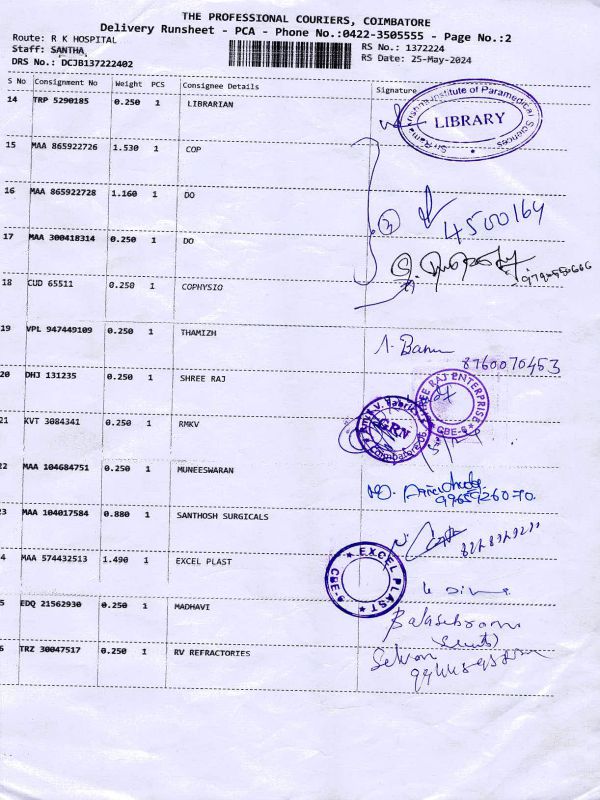 THE PROFESSIONAL COURIERS, COIMBATORE
Delivery Runsheet - PCA - Phone No.:0422-3505555 - Page No.:2
Route: R K HOSPITAL
Staff: SANTHA, RS No.: 1372224
DRS No.: DCJB137222402 RS Date: 25-May-2024
S No Consignment No Weight PCS Consignee Details Signature
14 TRP 5290185 0.250 1 LIBRARIAN
Institute of Paramedical Sciences
LIBRARY
15 MAA 865922726 1.530 1 COP
16 MAA 865922728 1.160 1 DO
3
4500164
17 MAA 300418314 0.250 1 DO
18 CUD 65511 0.250 1 COPHYSIO
19 VPL 947449109 0.250 1 THAMIZH
A. Banu
8760070453
20 DHJ 131235 0.250 1 SHREE RAJ
SHREE RAJ ENTERPRISE
CBE-6
21 KVT 3084341 0.250 1 RMKV
GRN
Coimbatore
22 MAA 104684751 0.250 1 MUNEESWARAN
23 MAA 104017584 0.880 1 SANTHOSH SURGICALS
24 MAA 574432513 1.490 1 EXCEL PLAST
EXCEL PLAST
CBE-9
5 EDQ 21562930 0.250 1 MADHAVI
6 TRZ 30047517 0.250 1 RV REFRACTORIES
Selvan